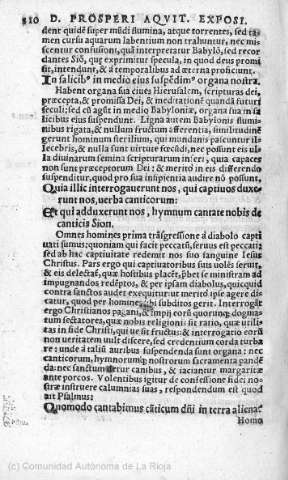 320 D. PROSPERI AQVIT. EXPOSI.
dent quidẽ super mũdi flumina, atque torrentes, sed ta-
men cursu aquarum labentium non trahuntur, nec mis-
centur confusioni, quã interpretatur Babylõ, sed recor
dantes Siõ, quę exprimitur specula, in quod deus promi
sit, intendunt, & à temporalibus ad æterna proficiunt.
In salicibº in medio eius suspẽdimº organa nostra.
Habent organa sua ciues Hierusalem, scripturas dei,
præcepta, & promissa Dei, & meditationẽ quandã futuri
seculi: sed cũ agũt in medio Babyloniæ, organa sua in sa
licibus eius suspendunt. Ligna autem Babylonis flumi-
nibus rigata, & nullum fructum afferentia, similitudinẽ
gerunt hominum sterilium, qui mundanis pascuntur il-
lecebris, & nulla sunt virtute fœcũdi, nec possunt eis ul-
la diuinarum semina scripturarum inseri, quia capaces
non sunt præceptorum Dei: & merito in eis differendo
suspenduntur, quod pro sua inpẽnitia audire nõ possunt.
Quia illic interrogauerunt nos, qui captiuos duxe-
runt nos, verba canticorum:
Et qui adduxerunt nos, hymnum cantate nobis de
canticis Sion.
Omnes homines prima trãsgressione à diabolo capti
uati sumus: quoniam qui facit peccatũ, seruus est peccati:
sed ab hac captiuitate redemit nos suo sanguine Iesus
Christus. Pars ergo qui captiuatoribus suis uolẽs seruit,
& eis delectaʳ, quæ hostibus placẽt, pbet se ministram ad
impugnandos redẽptos, & per ipsam diabolus, quicquid
contra sanctos audet exequitur ut merito ipse agere di-
catur, quod per homines sibi subditos gerit. Interrogãt
ergo Christianos pagani, & impij eorũ quorunq; dogma-
tum sectatores, quæ nobis religionis sit ratio, quæ utili-
tas in fide Christi, qui ue sit fructus: & interrogatio eorũ
non veritatem uult discere, sed credentium corda turba
re: unde à taliũ auribus suspendenda sunt organa: nec
canticorum, hymnorumq; nostrorum sacramenta pandẽ
da: nec sanctum detur canibus, & iaciantur margaritæ
ante porcos. Volentibus igitur de confessione fidei no-
stræ instruere calumnias suas, respondendum est quod
ait Psalmus:
Quomodo cantabimus cãticum dñi in terra aliena?
Homo
(c) Comunidad Autónoma de La Rioja